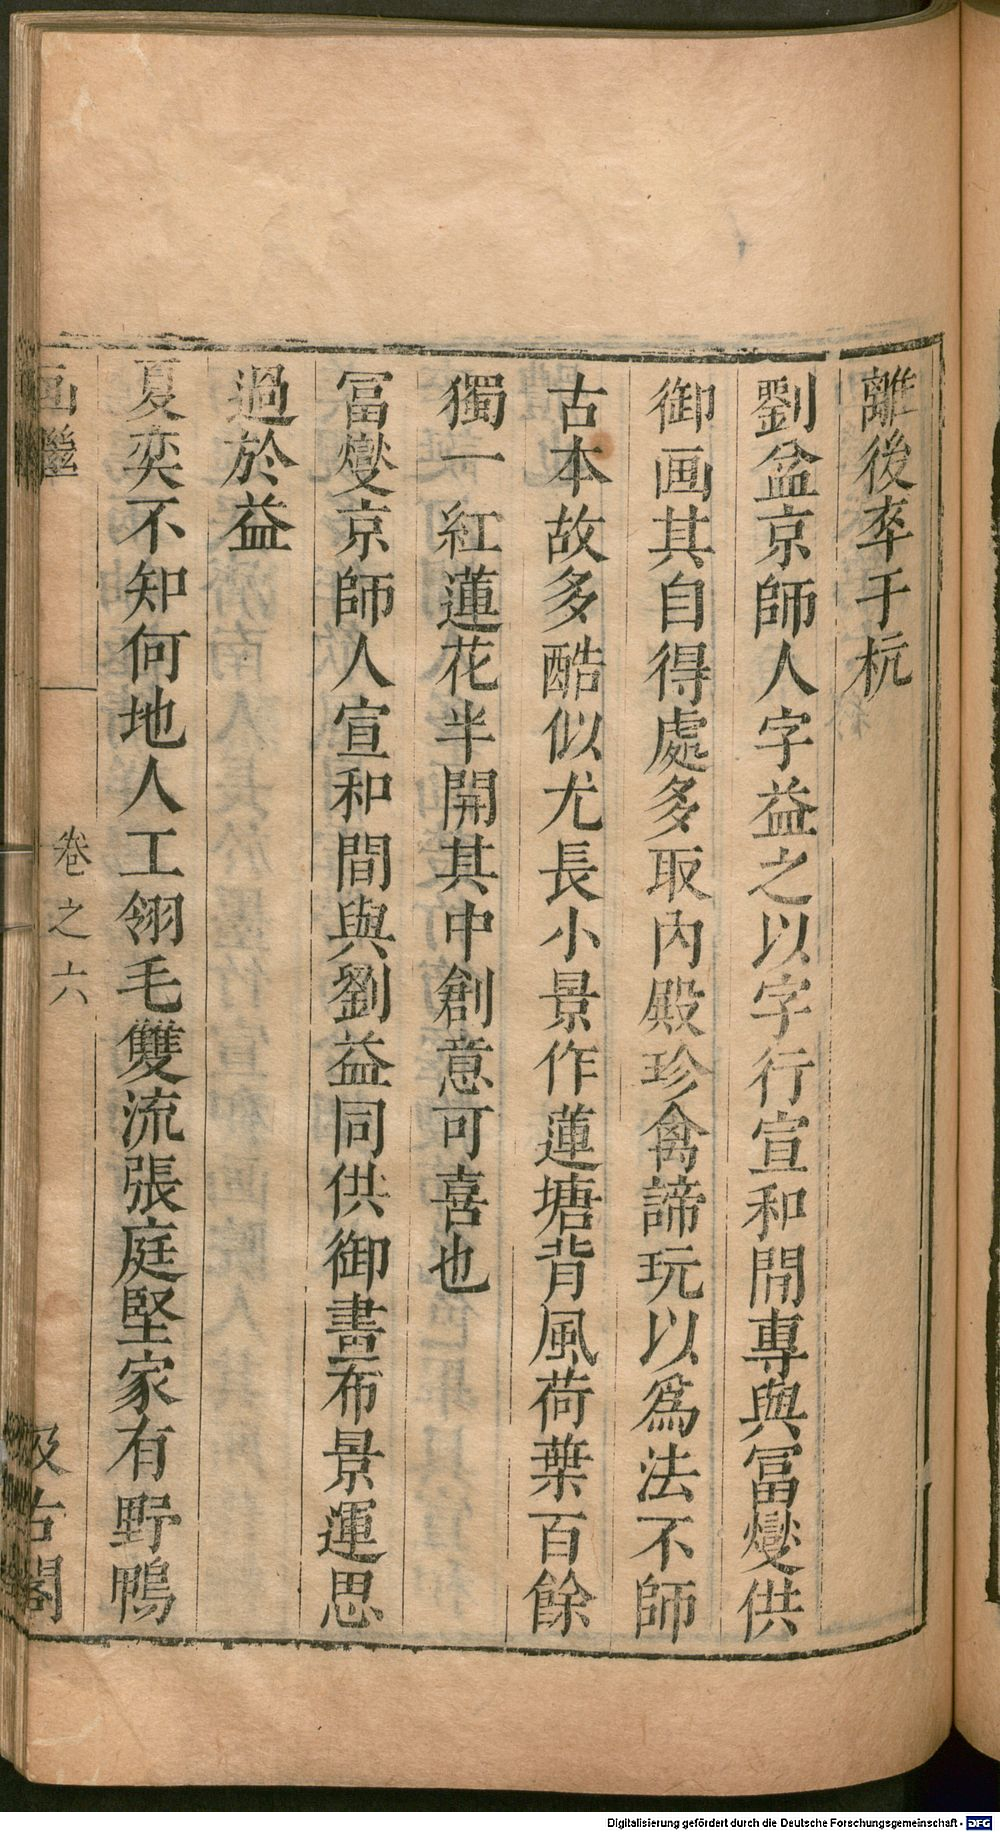 離後卒于杭
劉益京師人字益之以字行宣和間專與冨燮供
御画其自得處多取內殿珍禽諦玩以爲法不師
古本故多酷似尤長小景作蓮塘背風荷葉百餘
獨一紅蓮花半開其中創意可喜也
冨燮京師人宣和間與劉益同供御畫布景運思
過於益
夏奕不知何地人工翎毛雙流張庭堅家有野鴨
画繼
卷之六
汲古閣
Digitalisierung gefördert durch die Deutsche Forschungsgemeinschaft - DFG